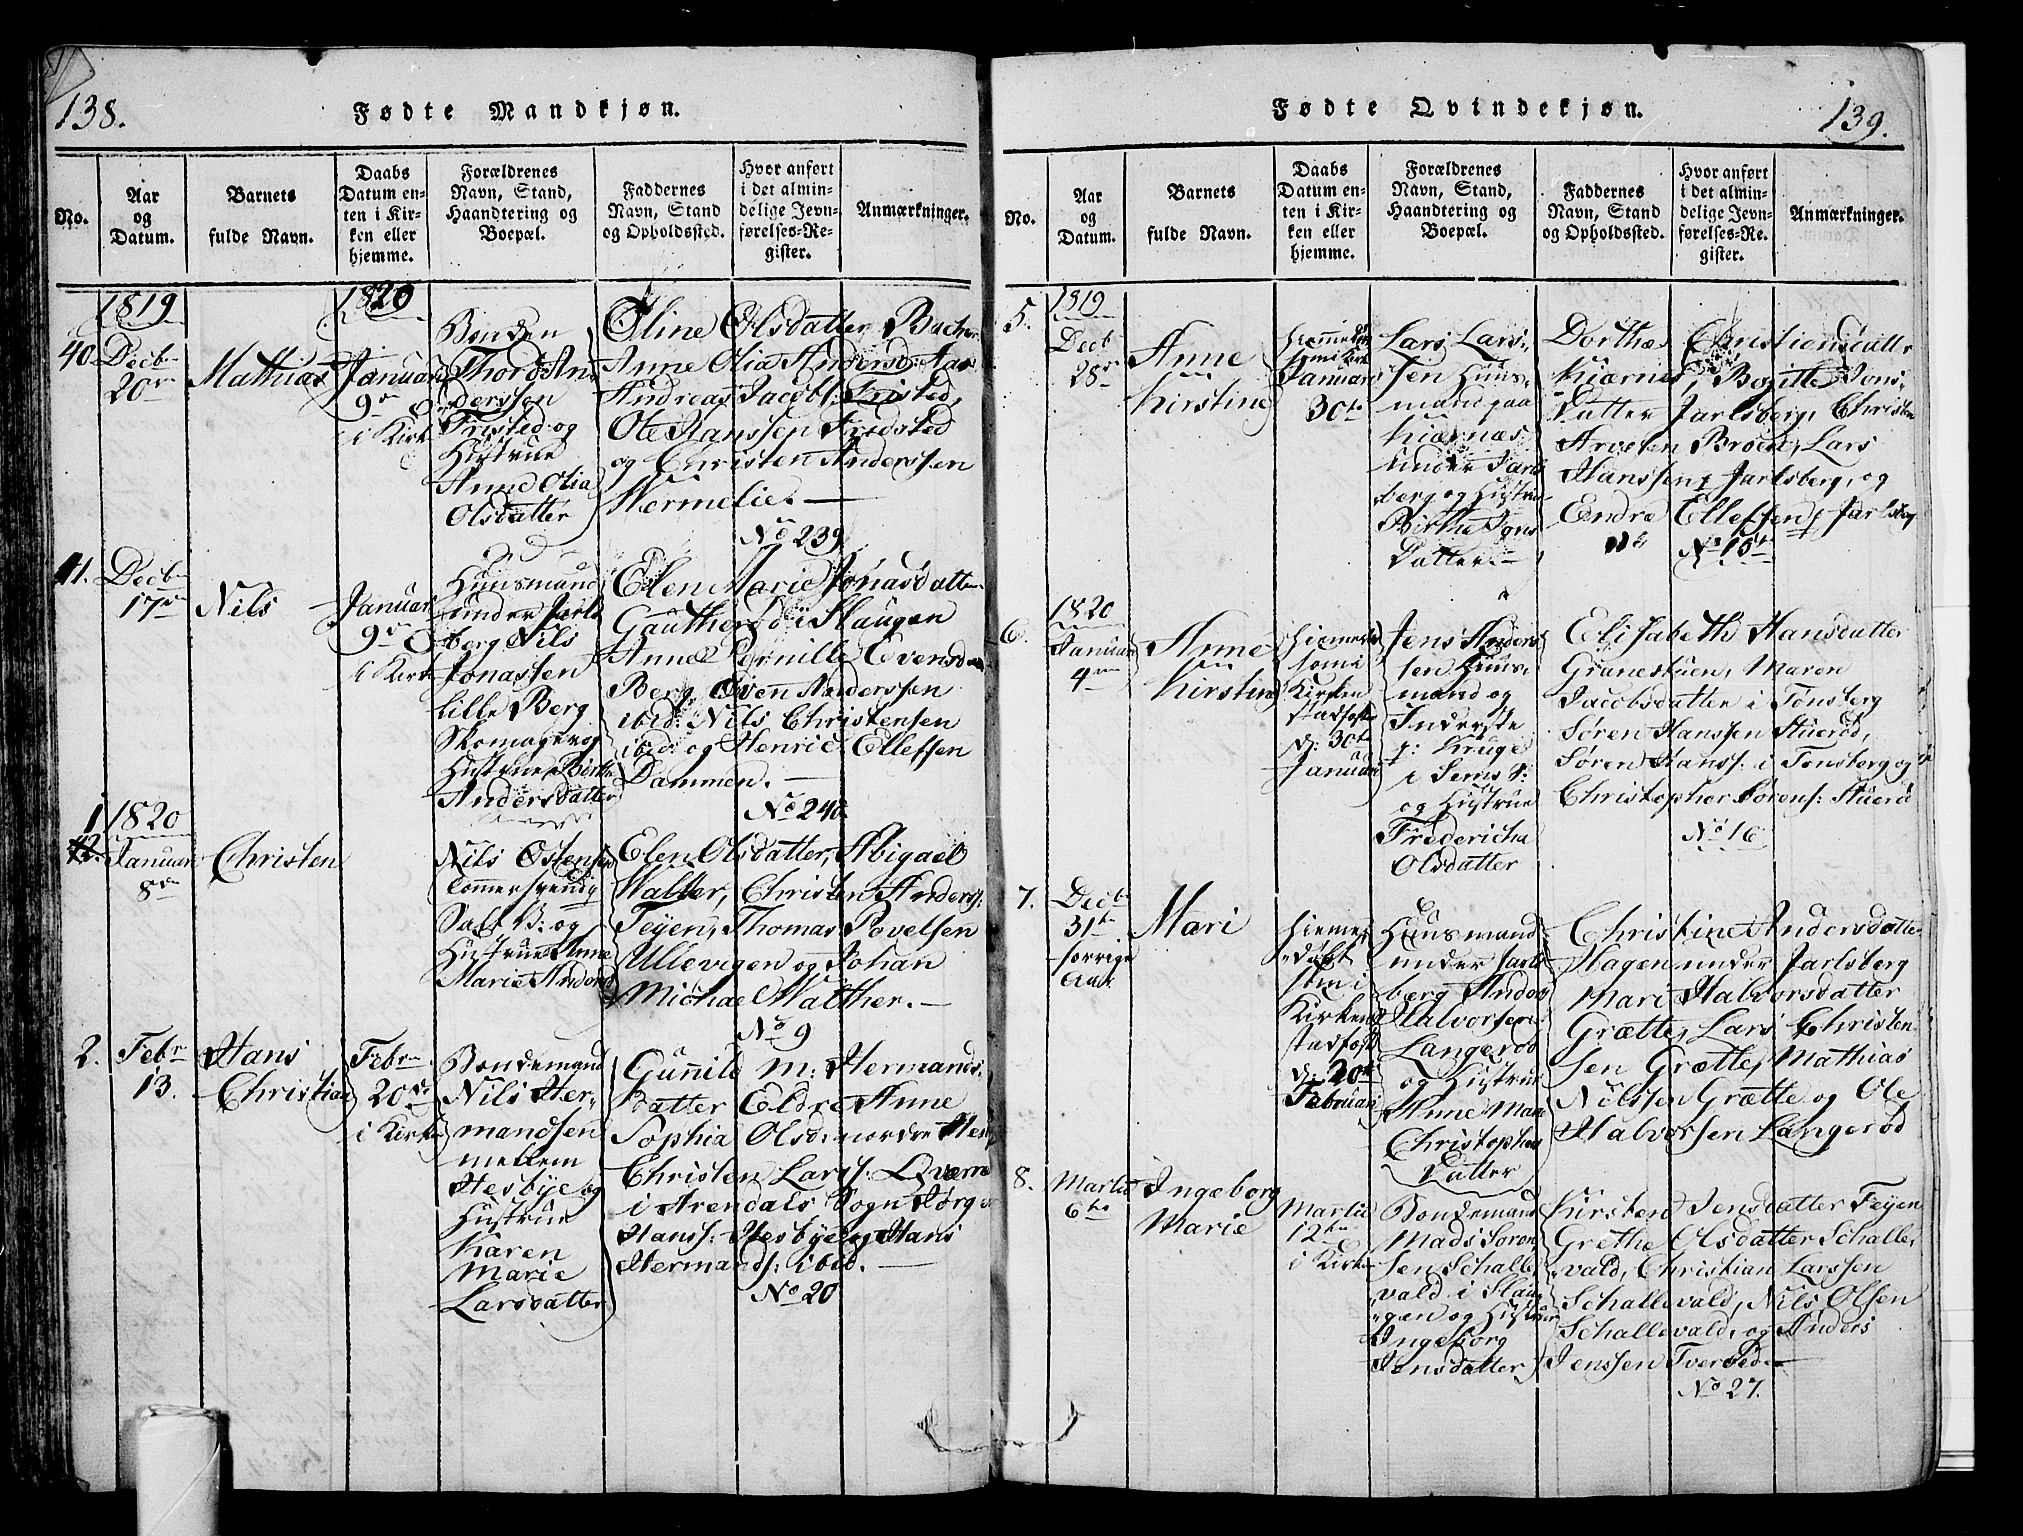 138.
Fødte Mandkjøn.
No.
Aar
og
Datum.
Barnets
fulde Navn.
Daabs
Datum en-
ten i Kir-
ken eller
hjemme.
Forældrenes
Navn, Stand,
Haandtering og
Boepæl.
Faddernes
Navn, Stand
og Opholdssted.
Hvor anført
i det almin-
delige Jevn-
førelses-Re-
gister.
Anmærkninger.
1819
40.
Decbr
20de
Mathias
1820
Januari
9de
i Kirk
Bonden
Thord An-
derssen
Fristed og
Hustrue
Anne Olia
Olsdatter
Oline Olsdatter
Anne Olia Andersd:
Andreas Jacobs: Fristed,
Ole Hanssen Fredsted
og Christen Anderssen
Wermelie. —
No 239
41.
Decbr
17de
Nils
Januari
9de
i Kirk
Huusmand
under Jarls
berg Nils
Jonassen
lille Berg
Skomager og
Hustrue Birthe
Andersdatter
Elen Marie Jonasdatter
i Slaugen
Anne Pernille Evensd
Berg, Even Anderssen
ibid: Nils Christensen
ibid: og Henric Ellefsen
Dammen. —
No 240
1
42.
1820
Januari
8de
Christen
Nils Ostensen
Tømmersvend i
og
Hustrue Anne
Marie
Elen Olsdatter, Abigael
Walter, Christen Anders:
Teyen, Thomas Povelsen
Ullevigen og Johan
Michael Walther. —
No 9
2.
Febr
13.
Hans
Christian
Febr
20de
i Kirke
Bondemand
Nils Her-
mandsen
mellem
Hesbye og
Hustrue
Karen
Marie
Larsdatter
Gunild M: Hermands-
datter Eldre Anne
Sophia Olsd: nordre
Christen Larss: Qværne
i Arendals Sogn Jørgen
Hanss: Hesbye og Hans
Hermands: ibid. —
No 20
139.
Fødte Qvindekjøn.
No.
Aar
og
Datum.
Barnets
fulde Navn.
Daabs
Datum en-
ten i Kir-
ken eller
hjemme.
Forældrenes
Navn, Stand,
Haandtering og
Boepæl.
Faddernes
Navn, Stand
og Opholdssted.
Hvor anført
i det almin-
delige Jevn-
førelses-Re-
gister.
Anmærkninger.
5.
1819
Decbr
28de
Anne
Kirstine
Januari
30te
Lars Lars-
sen Huus-
mand paa
Kiærnæs
under Jarls
berg og Hustrue
Birthe Jons
Datter. —
Dorthe Christiensdatter
Kiærnes, Birgitte Jons-
datter Jarlsberg, Christen
Arvesen Broen, Lars
Hanssen Jarlsberg, og
Endre Ellefsen Jarlsberg
No 15
6.
1820
Januari
4de
Anne
Kirstine
Hiemme
som i
Kirken
stadfæst
d: 30te
Januari
Jens Anders-
sen Huus-
mand og
Inderste
p: Kruge
i Sems S:
og Hustrue
Fredericha
Olsdatter
Elisabeth Hansdatter
Granestuen, Maren
Jacobsdatter i Tønsberg
Søren Hanssen Stuerød,
Søren Hanss: i Tønsberg og
Christopher Sørens: Stuerød
No 16
7.
Decbr
31te
forrige
Aar
Mari
Hieme-
døbt
som i
Kirken
stadfæst
d: 20de
Februari
Huusmand
under Jarls
berg Anders
Halvorsen
Langerød
og Hustrue
Anne Marie
Christophers
Datter
Christine Andersdatter
Hagen under Jarlsberg
Mari Halvorsdatter
Grætte, Lars Christen-
sen Grætte, Mathias
Nilssen Grætte og Ole
Halvorsen Langerød
8.
Martii
6te
Ingeborg
Marie
Martii
12te
i Kirke
Bondemand
Mads Søren-
sen Schalle
vald i Slau-
gen og Hustrue
Ingeborg
Jensdatter
Kirsten Jensdatter Feyen
Grethe Olsdatter Schalle-
vald, Christian Larssen
Schallevald, Nils Olsen
Schallevald, og Anders
Jenssen Tverved. —
No 27.